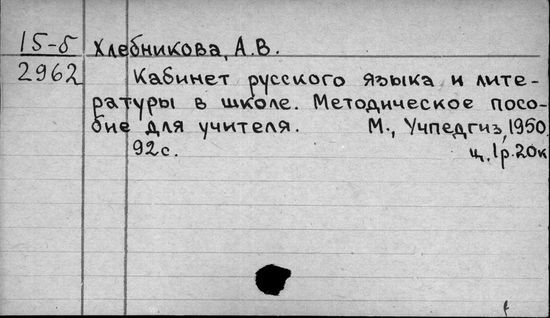 15-5 Хлебникова, А.В.
2962 Кабинет русского языка и лите-
ратуры в школе. Методическое посо-
бие для учителя. М., Учпедгиз, 1950
92с. ц. 1р. 20к